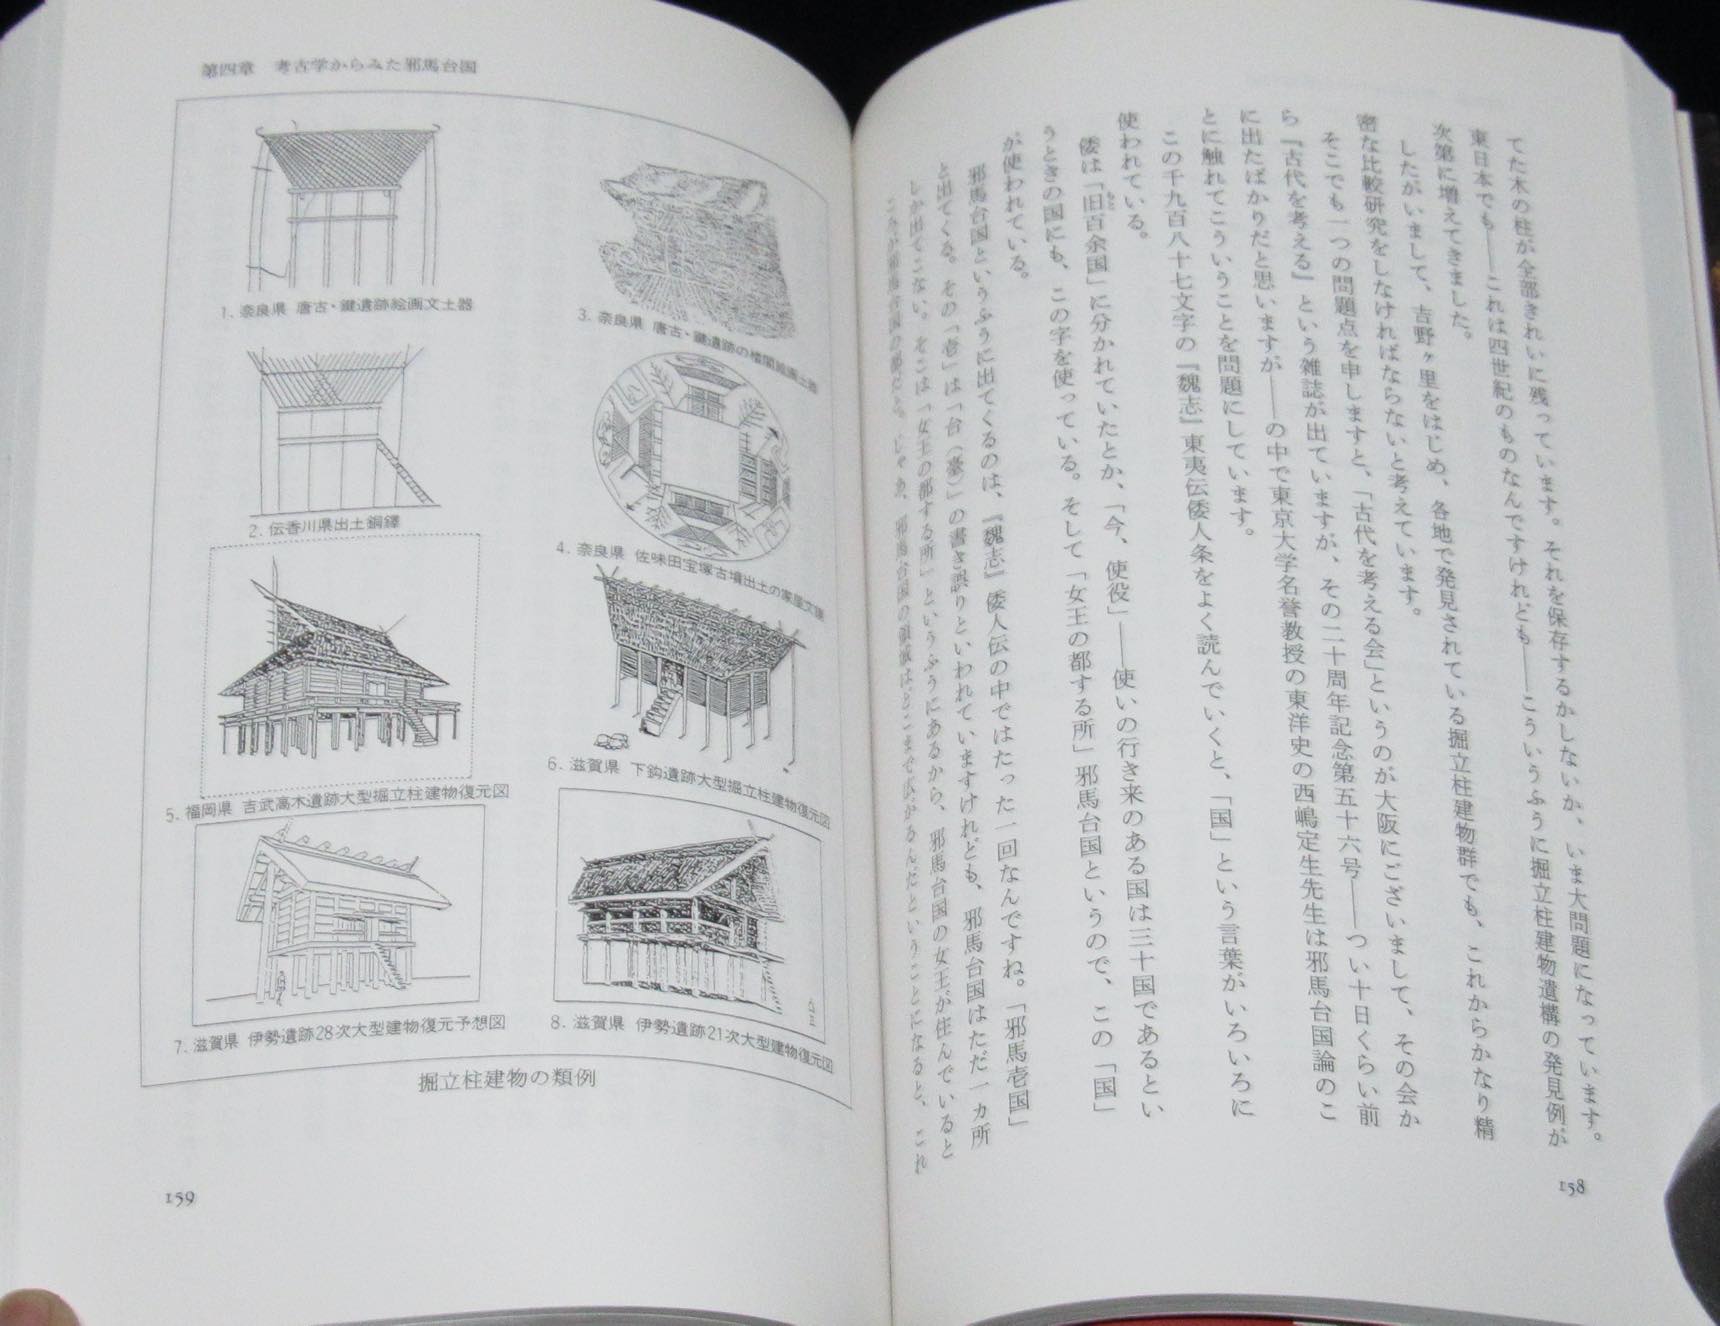 てた木の柱が全部きれいに残っています。それを保存するかしないか、いま大問題になっています。
東日本でも――これは四世紀のものなんですけれども――こういうふうに掘立柱建物遺構の発見例が
次第に増えてきました。
したがいまして、吉野ヶ里をはじめ、各地で発見されている掘立柱建物群でも、これからかなり精
密な比較研究をしなければならないと考えています。
そこでも一つの問題点を申しますと、「古代を考える会」というのが大阪にございまして、その会か
ら『古代を考える』という雑誌が出ていますが、その二十周年記念第五十六号――つい十日くらい前
に出たばかりだと思いますが――の中で東京大学名誉教授の東洋史の西嶋定生先生は邪馬台国論のこ
とに触れてこういうことを問題にしています。
この千九百八十七文字の『魏志』東夷伝倭人条をよく読んでいくと、「国」という言葉がいろいろに
使われている。
倭は「旧百余国」に分かれていたとか、「今、使役」――使いの行き来のある国は三十国であるとい
うときの国にも、この字を使っている。そして「女王の都する所」邪馬台国というので、この「国」
が使われている。
邪馬台国というふうに出てくるのは、『魏志』倭人伝の中ではたった一回なんですね。「邪馬壱国」
と出てくる。その「壱」は「台(臺)」の書き誤りといわれていますけれども、邪馬台国はただ一カ所
しか出てこない。そこは「女王の都する所」というふうにあるから、邪馬台国の女王が住んでいると
ころが邪馬台国の都だと。じゃあ、邪馬台国の領域はどこまで広がるんだということになると、これ
158
第四章 考古学からみた邪馬台国
1. 奈良県 唐古・鍵遺跡絵画文土器
3. 奈良県 唐古・鍵遺跡の楼閣絵画土器
2. 伝香川県出土銅鐸
4. 奈良県 佐味田宝塚古墳出土の家屋文鏡
5. 福岡県 吉武高木遺跡大型掘立柱建物復元図
6. 滋賀県 下鈎遺跡大型掘立柱建物復元図
7. 滋賀県 伊勢遺跡28次大型建物復元予想図
8. 滋賀県 伊勢遺跡21次大型建物復元図
掘立柱建物の類例
159